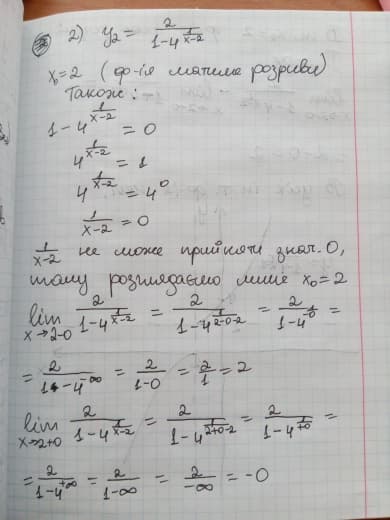 2) y₂ = 2/(1-4^(1/(x-2)))
x₀=2 (ф-ія матиме розриви)
Також:
1-4^(1/(x-2)) = 0
4^(1/(x-2)) = 1
4^(1/(x-2)) = 4⁰
1/(x-2) = 0
1/(x-2) не може прийняти знач. 0,
тому розглядаємо лише x₀=2
lim x→2-0 2/(1-4^(1/(x-2))) = 2/(1-4^(1/(2-0-2))) = 2/(1-4^(1/-0)) =
= 2/(1-4^(-∞)) = 2/(1-0) = 2/1 = 2
lim x→2+0 2/(1-4^(1/(x-2))) = 2/(1-4^(1/(2+0-2))) = 2/(1-4^(1/+0)) =
= 2/(1-4^(+∞)) = 2/(1-∞) = 2/(-∞) = -0